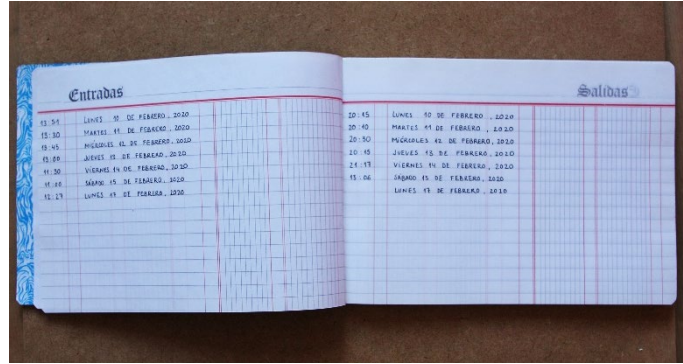 Entradas
13:51 LUNES 10 DE FEBRERO, 2020
13:30 MARTES 11 DE FEBRERO, 2020
13:45 MIÉRCOLES 12 DE FEBRERO, 2020
JUEVES 13 DE FEBRERO, 2020
11:50 VIERNES 14 DE FEBRERO, 2020
11:00 SÁBADO 15 DE FEBRERO, 2020
12:27 LUNES 17 DE FEBRERO, 2020
Salidas
20:15 LUNES 10 DE FEBRERO, 2020
20:10 MARTES 11 DE FEBRERO, 2020
20:50 MIÉRCOLES 12 DE FEBRERO, 2020
20:15 JUEVES 13 DE FEBRERO, 2020
21:17 VIERNES 14 DE FEBRERO, 2020
SÁBADO 15 DE FEBRERO, 2020
LUNES 17 DE FEBRERO, 2020